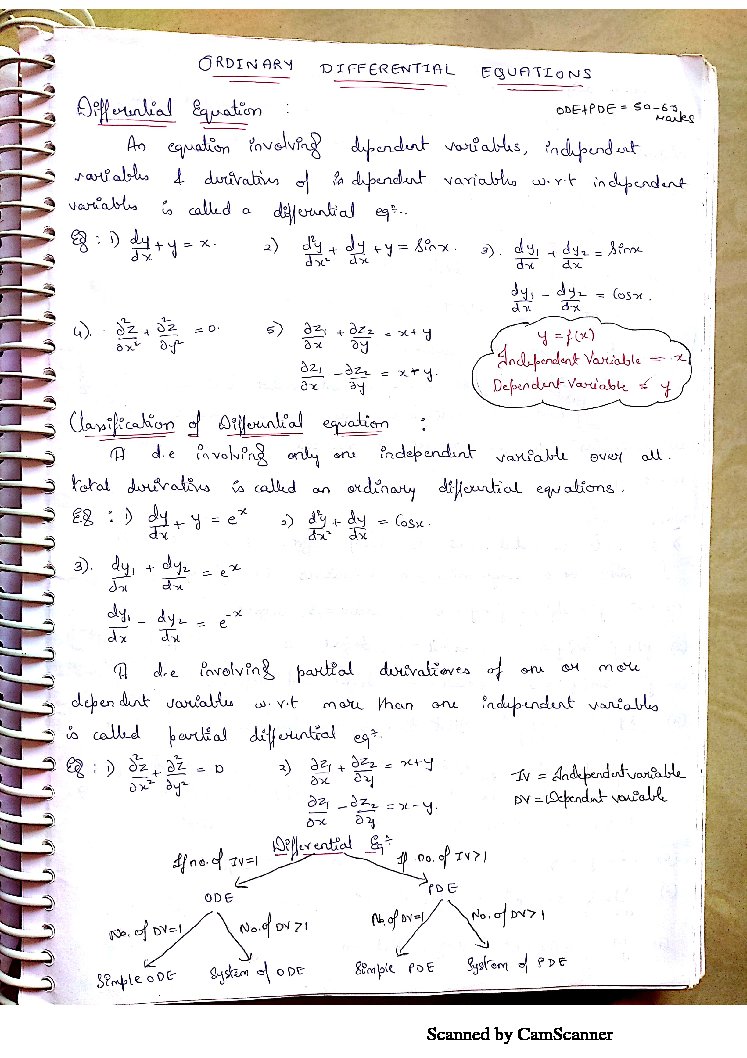 ORDINARY DIFFERENTIAL EQUATIONS
ODE+PDE = 50-63 Marks
Differential Equation :
An equation involving dependent variables, independent
variables & derivatives of independent variables w.r.t independent
variables is called a differential eqn..
Eg : 1) dy/dx + y = x. 2) d²y/dx² + dy/dx + y = Sinx. 3). dy₁/dx + dy₂/dx = Sinx
dy₁/dx - dy₂/dx = Cosx.
4). ∂²z/∂x² + ∂²z/∂y² = 0. 5) ∂z₁/∂x + ∂z₂/∂y = x+y
∂z₁/∂x - ∂z₂/∂y = x+y.
y = f(x)
Independent Variable = x
Dependent Variable = y
Classification of Differential equation :
A d.e involving only one independent variable over all
total derivatives is called an ordinary differential equations.
Eg : 1) dy/dx + y = eˣ 2) d²y/dx² + dy/dx = Cosx.
3). dy₁/dx + dy₂/dx = eˣ
dy₁/dx - dy₂/dx = e⁻ˣ
A d.e involving partial derivatioves of one or more
dependent variables w.r.t more than one independent variables
is called partial differential eqn.
Eg : 1) ∂²z/∂x² + ∂²z/∂y² = 0 2) ∂z₁/∂x + ∂z₂/∂y = x+y
∂z₁/∂x - ∂z₂/∂y = x-y.
IV = Independent variable
DV = Dependent variable
Differential Eqn
If no. of IV=1 If no. of IV>1
ODE PDE
No. of DV=1 No. of DV>1 No. of DV=1 No. of DV>1
Simple ODE System of ODE Simple PDE System of PDE
Scanned by CamScanner